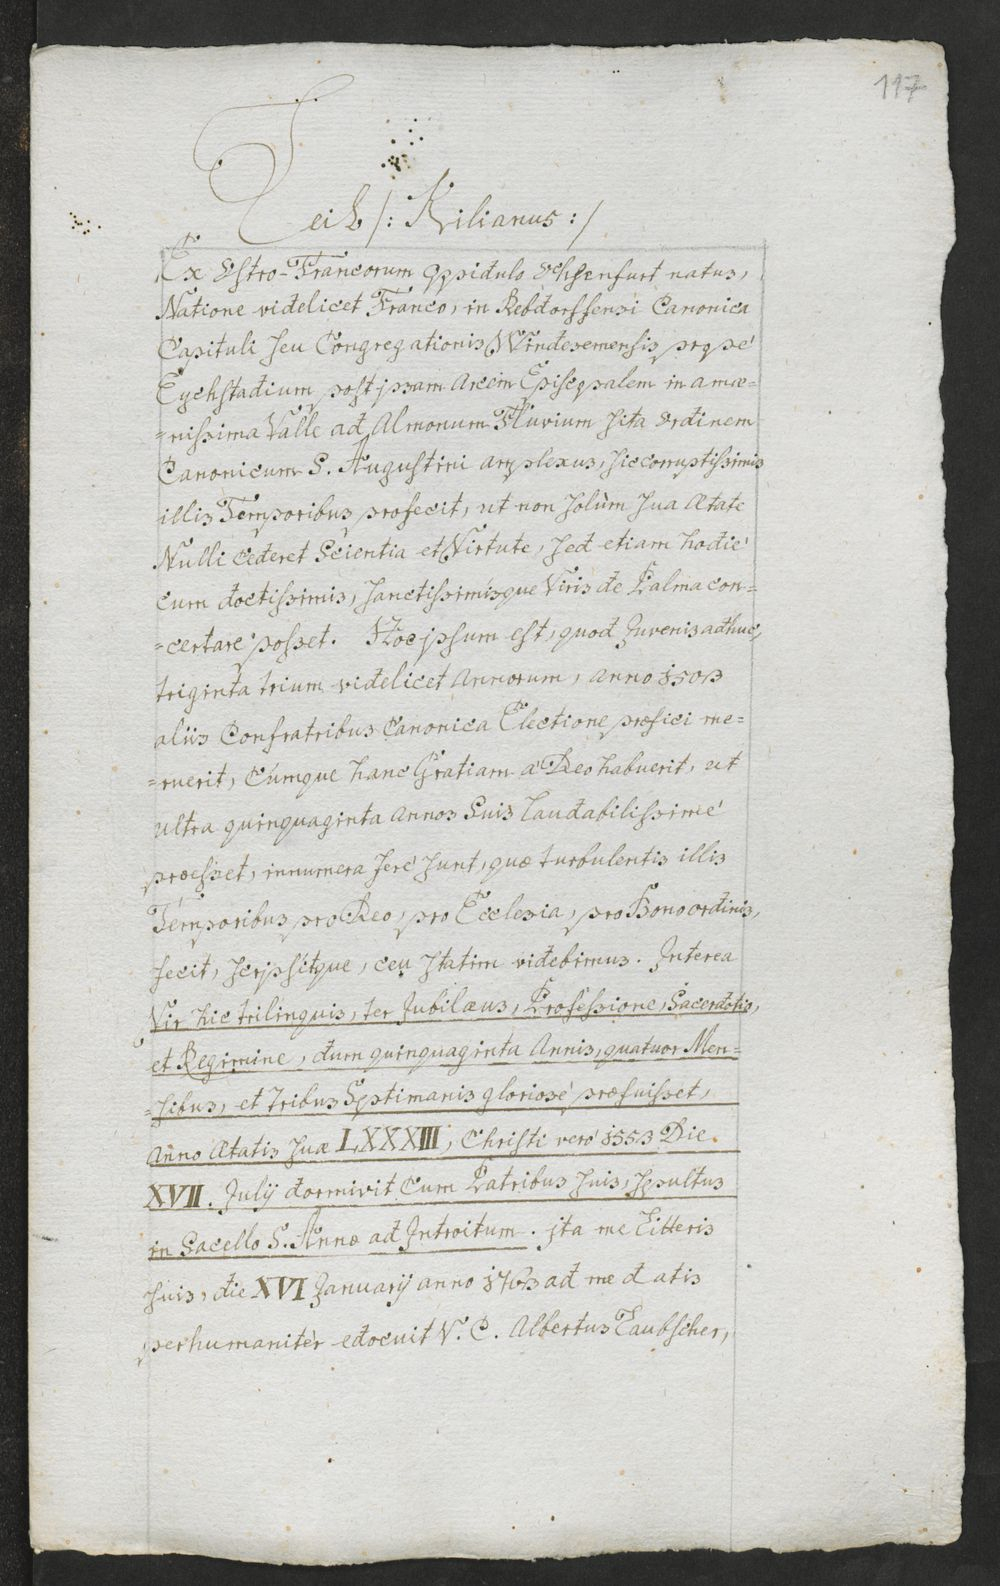 117
Leib /: Kilianus :/
Ex Ostro-Francorum Oppidulo Ochsenfurt natus,
Natione videlicet Franco, in Rebdorffensi Canonica
Capituli seu Congregationis Windesemensis prope
Eychstadium, post ipsam Arcem Episcopalem in amœ=
=nissima Valle ad Almonum Fluvium sita Ordinem
Canonicum S. Augustini amplexus, sic corruptissimis
illis Temporibus profecit, ut non solùm sua Ætate
Nulli cederet Scientia et Virtute, sed etiam hodie
cum doctissimis, sanctissimisque Viris de Palma con=
=certare posset. Hoc ipsum est, quod Juvenis adhuc,
triginta trium videlicet Annorum, anno 1503
aliis Confratribus Canonica Electione præfici me=
=ruerit, Cúmque hanc Gratiam a Deo habuerit, ut
ultra quinquaginta Annos Suis laudabilissimè
præesset, innumera ferè sunt, quæ turbulentis illis
Temporibus pro Deo, pro Ecclesia, pro Bono ordinis,
fecit, scripsitque, ceu statim videbimus. Interea
Vir hic trilinguis, ter Jubilæus, Professione, Sacerdotio,
et Regimine, dum quinquaginta Annis, quatuor Men=
=sibus, et tribus Septimanis gloriosè præfuisset,
Anno Ætatis suæ LXXXIII, Christi verò 1553 Die
XVII. Julij dormivit Cum Patribus suis, Sepultus
in Sacello S. Annæ ad Introitum. ita me Litteris
suis, die XVI Januarij anno 1763 ad me datis
perhumanitèr edocuit V. P. Albertus Taubscher,